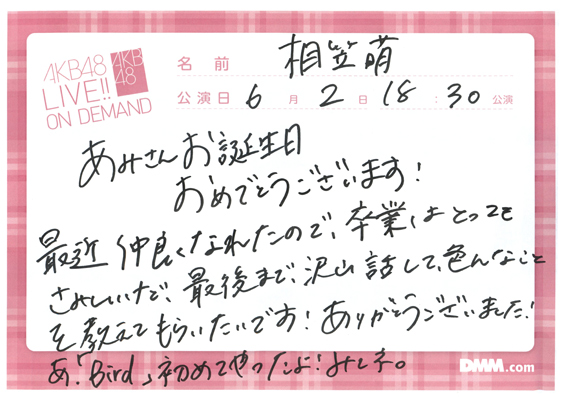 AKB48
LIVE!!
ON DEMAND
AKB
48
名 前 相笠萌
公演日 6 月 2 日 18 : 30 公演
あみさんお誕生日
おめでとうございます!
最近仲良くなれたので、卒業はとっても
さみしいけど、最後まで、沢山話して、色んなこと
を教えてもらいたいです!ありがとうございました!
あ!「Bird」初めてやったよ!
DMM.com